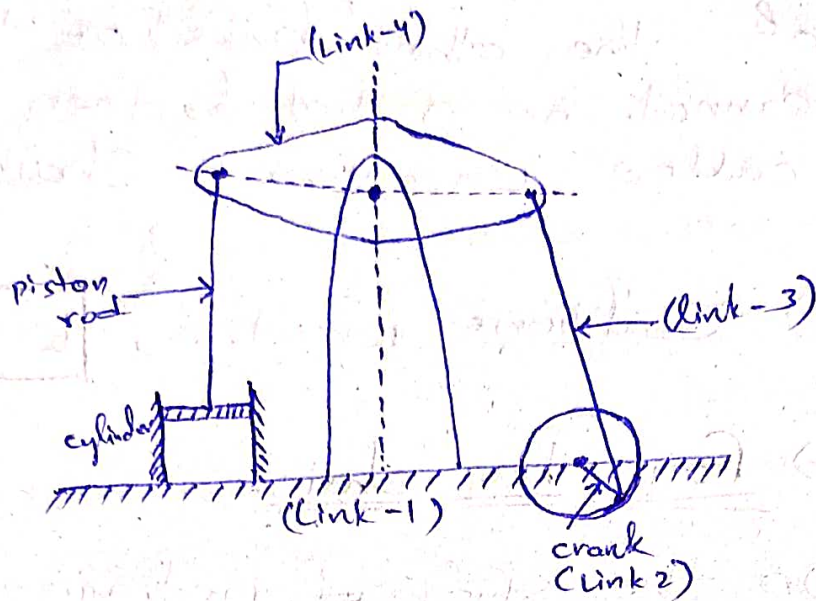 (Link-4)
piston
rod
(link-3)
cylinder
(Link-1)
crank
(Link 2)